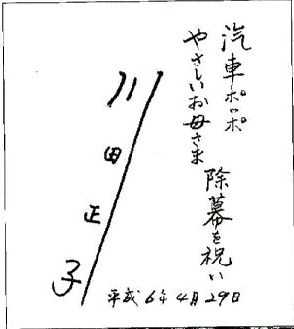 汽車ポッポ
やさしいお母さま
除幕を祝い
川田正子
平成6年4月29日